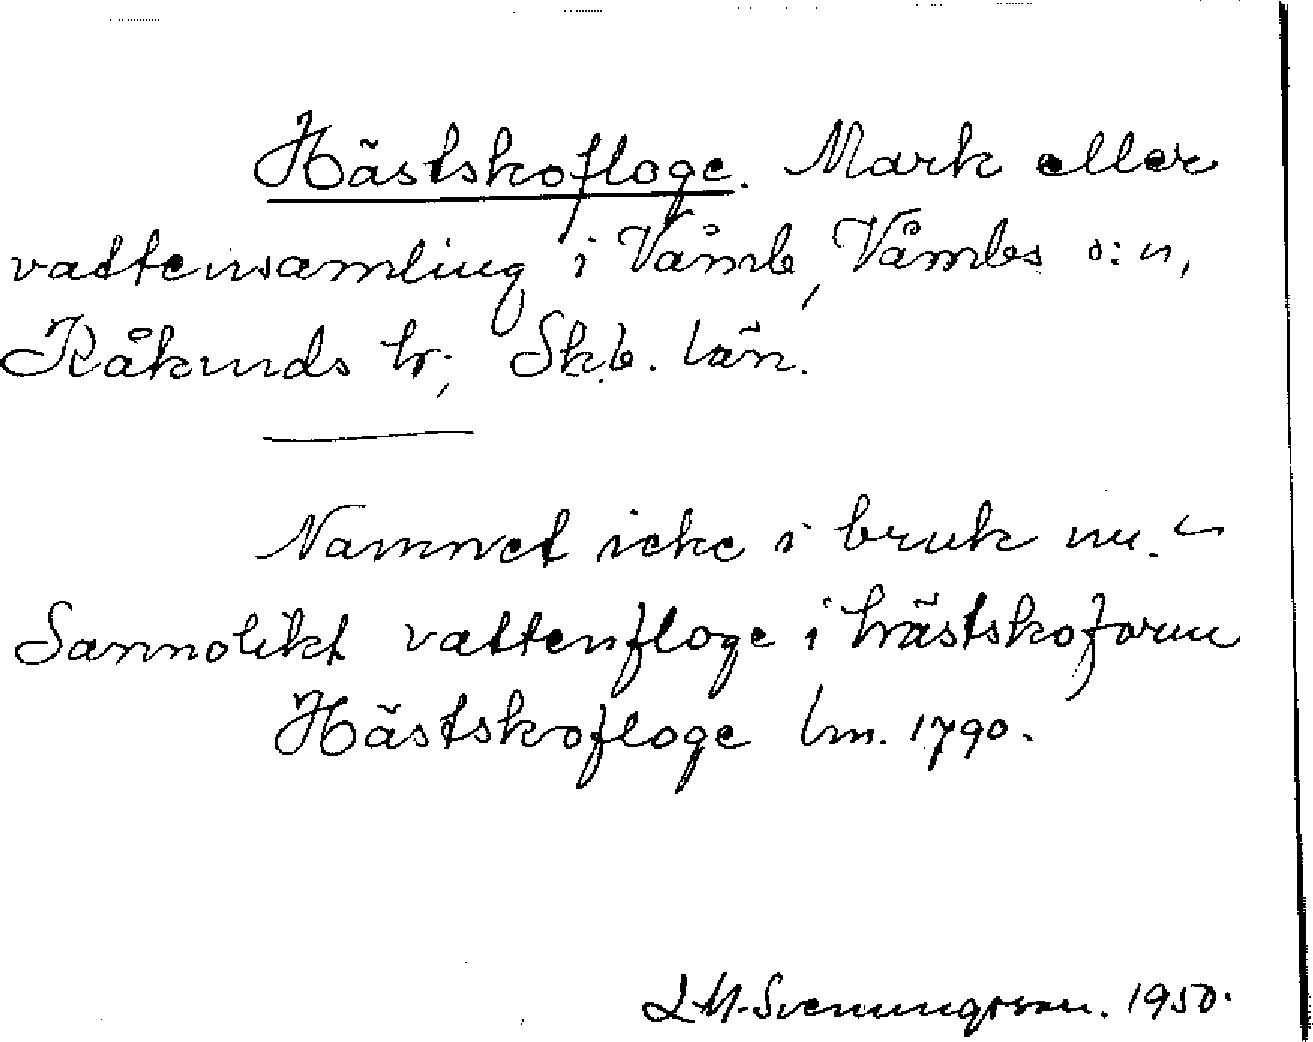 Hästskofloge. Mark eller
vattensamling i Våmb, Våmbs s:n,
Kåkinds hr; Skb. län.
Namnet icke i bruk nu. –
Sannolikt vattenfloge i hästskoform
Hästskofloge lm. 1790.
L.M. Svenungsson. 1950.